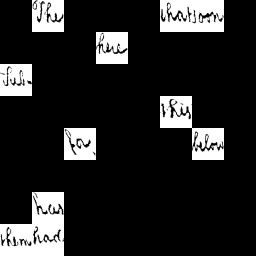 The that soon
here
Sub-
this
for. below
has
them had